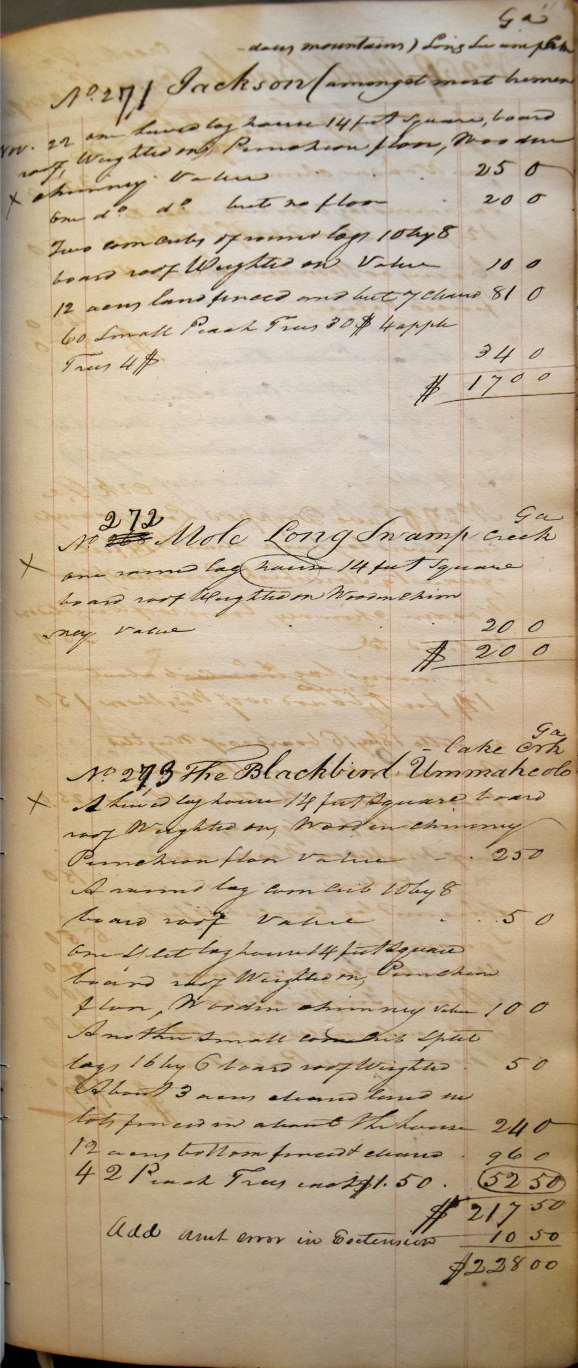 Ga
-dous mountains) Long Swamp Crk
No. 271 Jackson (amongst most tremen
Nov. 22 one hewed log house 14 feet square, board
roof, Weighted on, Puncheon floor, Wooden
X chimney. Value 25 0
one do. do. but no floor 20 0
Two corn cribs of round logs 10 by 8
board roof Weighted on Value 10 0
12 acres land fenced and but 7 cleard 81 0
60 Small Peach Trees 30$ 4 apple
Trees 4$ 34 0
$ 170 0
Ga
No. 272 Mole Long Swamp Creek
X one round log house 14 feet Square
board roof Weighted on Wooden Chim
ney Value 20 0
$ 20 0
Ga
- Cake Crk
No. 273 The Blackbird, Ummakcolo
X A hewed log house 14 feet Square board
roof Weighted on, Wooden chimney
Puncheon floor Value - 25 0
A round log corn crib 10 by 8
board roof Value 5 0
one Split log house 14 feet Square
board roof Weighted on, Puncheon
floor, Wooden chimney Value 10 0
Another small corn crib Split
logs 16 by 6 board roof Weighted 5 0
About 3 acres cleared land in
lots fenced in about the house 24 0
12 acres bottom fenced & cleared 96 0
42 Peach Trees each $1.50. 52 50
$ 217 50
Add amt error in Extension 10 50
$ 228 00